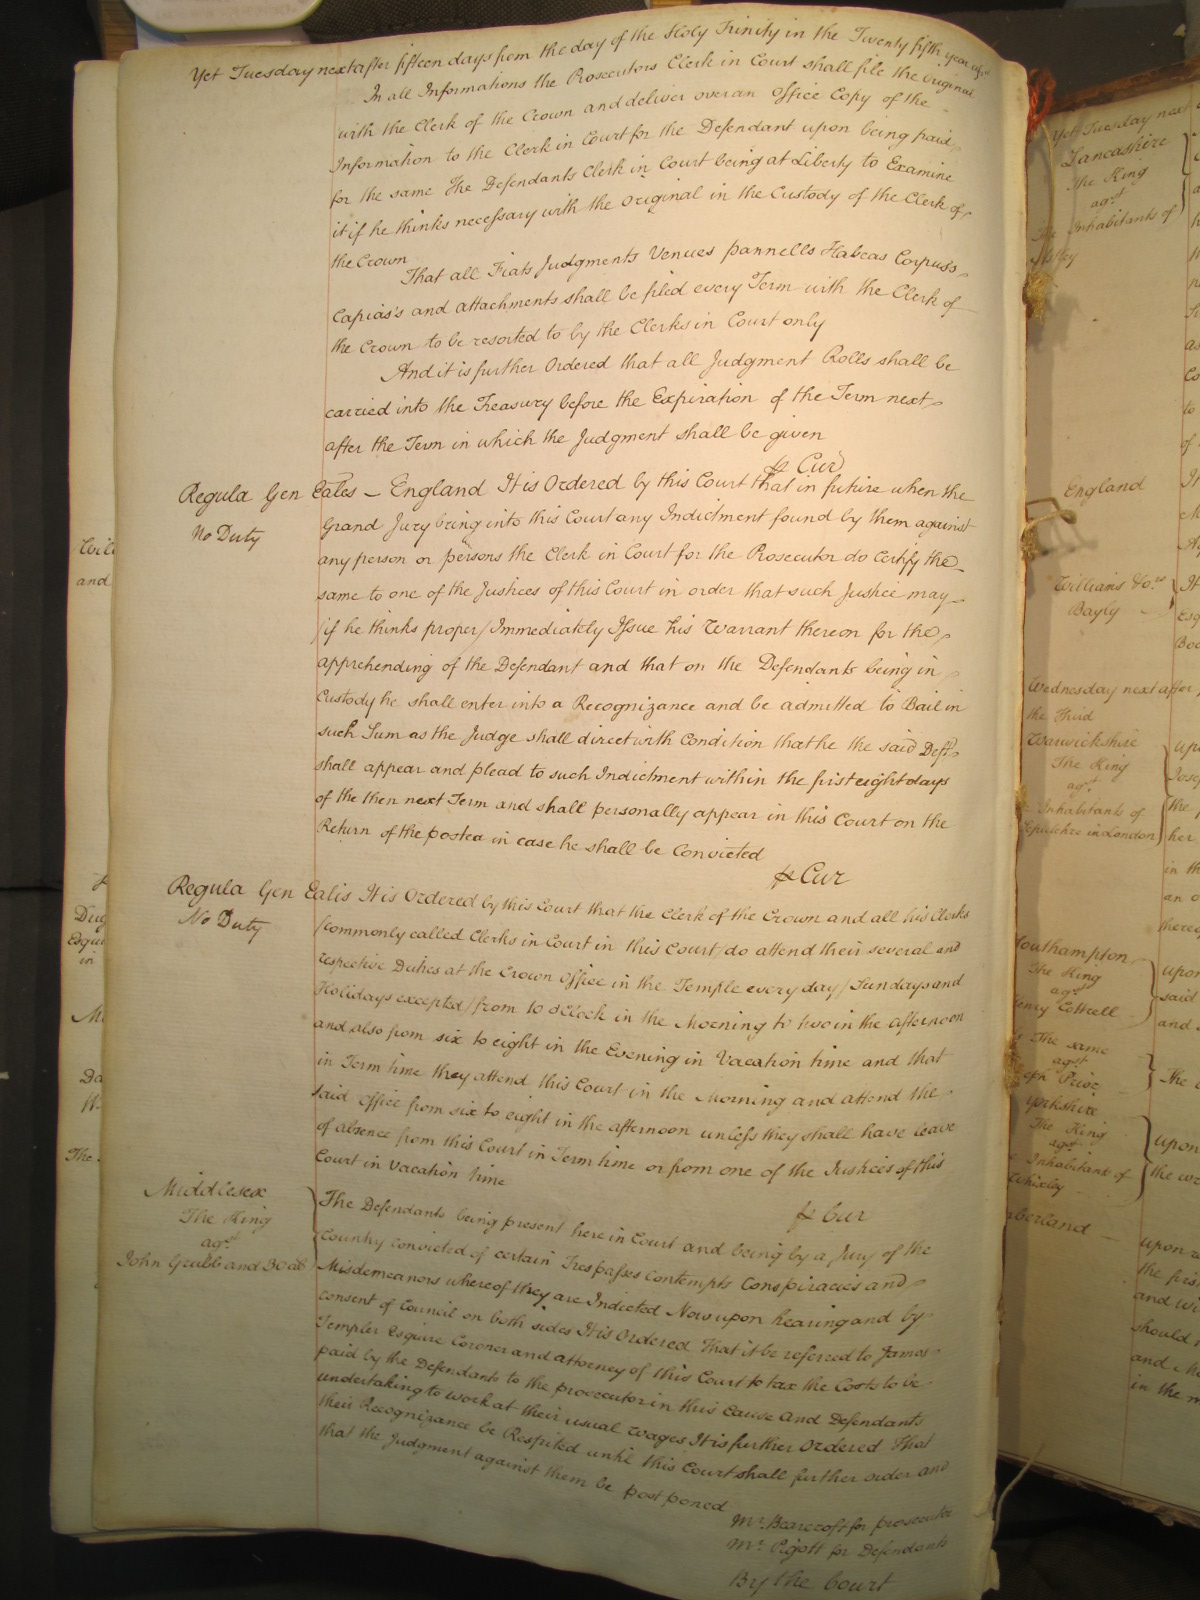 Yet Tuesday next after fifteen days from the day of the Holy Trinity in the Twenty fifth year
In all Informations the Prosecutors Clerk in Court shall file the Original
with the Clerk of the Crown and deliver over an Office Copy of the
Information to the Clerk in Court for the Defendant upon being paid
for the same The Defendants Clerk in Court being at Liberty to Examine
it if he thinks necessary with the Original in the Custody of the Clerk of
the Crown
That all Fiats Judgments Venues pannells Habeas Corpuss
Capias's and attachments shall be filed every Term with the Clerk of
the Crown to be resorted to by the Clerks in Court only
And it is further Ordered that all Judgment Rolls shall be
carried into the Treasury before the Expiration of the Term next
after the Term in which the Judgment shall be given
₽ Cur
Regula Gen Eales – England It is Ordered by this Court that in future when the
No Duty
Grand Jury bring into this Court any Indictment found by them against
any person or persons the Clerk in Court for the Prosecutor do Certify the
same to one of the Justices of this Court in order that such Justice may
/if he thinks proper/ Immediately Issue his Warrant thereon for the
apprehending of the Defendant and that on the Defendants being in
Custody he shall enter into a Recognizance and be admitted to Bail in
such Sum as the Judge shall direct with Condition that he the said Deft
shall appear and plead to such Indictment within the first eight days
of the then next Term and shall personally appear in this Court on the
Return of the postea in case he shall be Convicted
₽ Cur
Regula Gen Ealis It is Ordered by this Court that the Clerk of the Crown and all his Clerks
No Duty
/commonly called Clerks in Court in this Court/ do attend their several and
respective Duties at the Crown Office in the Temple every day /Sundays and
Holidays excepted/ from 10 oClock in the Morning to two in the afternoon
and also from six to eight in the Evening in Vacation time and that
in Term time they attend this Court in the Morning and attend the
said Office from six to eight in the afternoon unless they shall have leave
of absence from this Court in Term time or from one of the Justices of this
Court in Vacation time
₽ Cur
Middlesex
The King
agst
John Grubb and 30 als
The Defendants being present here in Court and being by a Jury of the
Country convicted of certain Trespasses Contempts Conspiracies and
Misdemeanors whereof they are Indicted Now upon hearing and by
consent of Council on both sides It is Ordered That it be referred to James
Templer Esquire Coroner and attorney of this Court to tax the Costs to be
paid by the Defendants to the prosecutor in this Cause And Defendants
undertaking to work at their usual wages It is further Ordered That
their Recognizance be Respited until this Court shall further order and
that the Judgment against them be postponed
Mr. Bearcroft for prosecutor
Mr. Pigott for Defendants
By the Court
Yet Tuesday next
Lancashire
The King
agst
The Inhabitants of
England
Williams & ors
Bayly
Wednesday next after
the Third
Warwickshire
The King
agst
Inhabitants of
Sepulchre in London
Southampton
The King
agst
Henry Cottrell
The same
agst
Yorkshire
The King
agst
Inhabitants of
Whixley